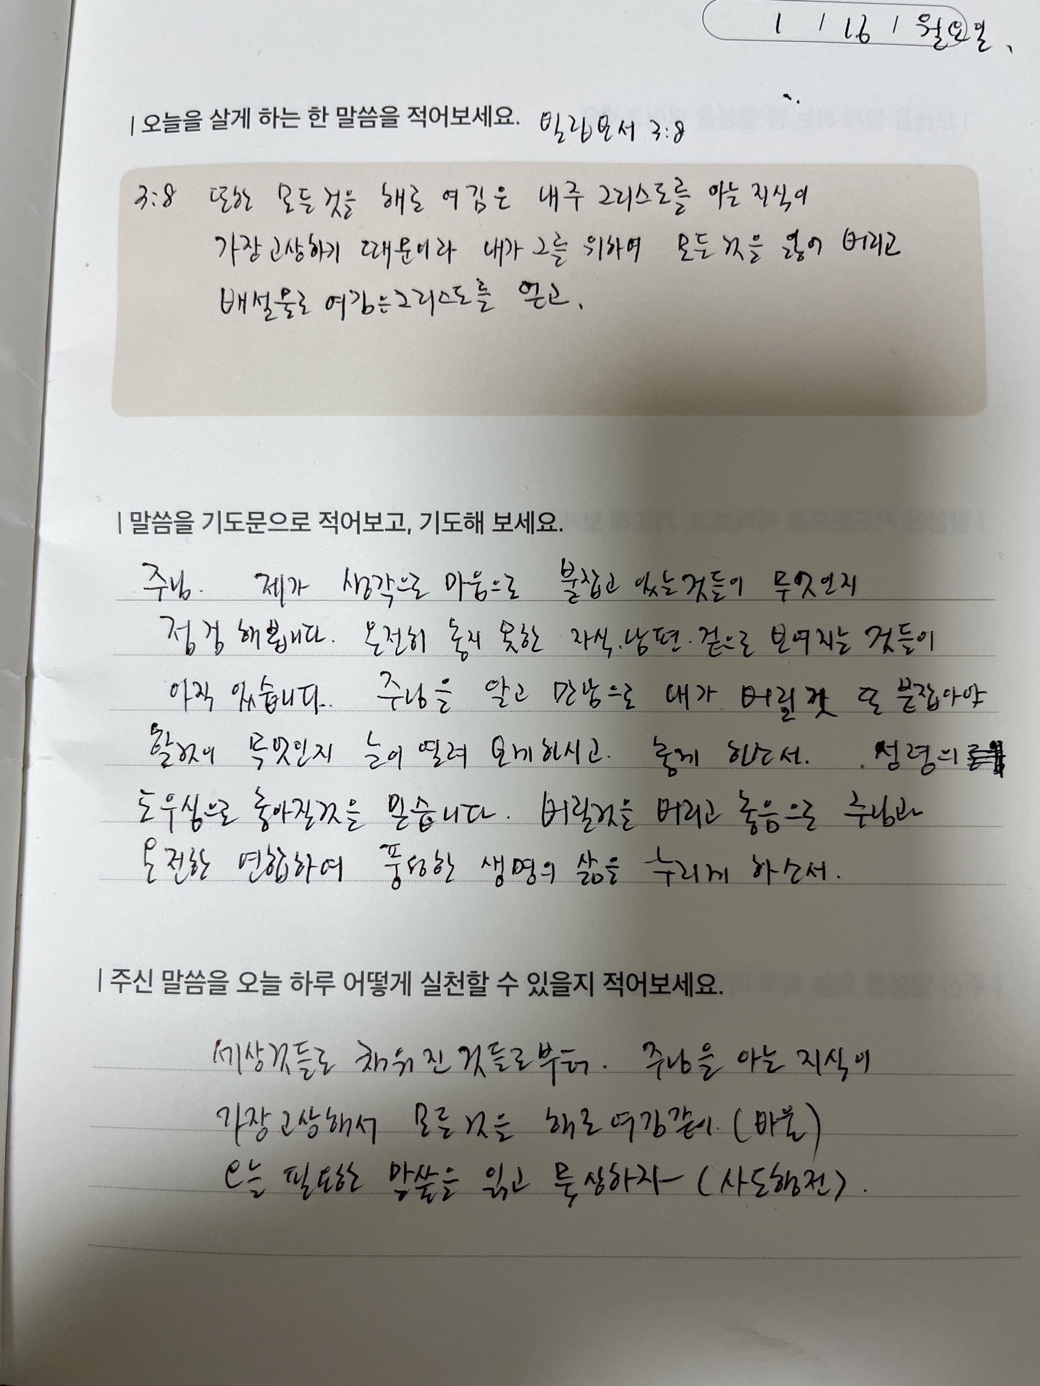 1 / 16 / 월요일.
오늘을 살게 하는 한 말씀을 적어보세요. 빌립보서 3:8
3:8 또한 모든것을 해로 여김은 내주 그리스도를 아는 지식이
가장 고상하기 때문이라 내가 그를 위하여 모든것을 잃어 버리고
배설물로 여김은 그리스도를 얻고.
말씀을 기도문으로 적어보고, 기도해 보세요.
주님. 제가 생각으로 마음으로 붙잡고 있는것들이 무엇인지
점검해봅니다. 온전히 놓지 못한 자식.남편.겉으로 보여지는 것들이
아직 있습니다. 주님을 알고 만남으로 내가 버릴것 또 붙잡아야
할것이 무엇인지 눈이 열려 보게하시고. 놓게 하소서. 성령의
도우심으로 놓아질것을 믿습니다. 버릴것을 버리고 놓음으로 주님과
온전한 연합하여 풍요한 생명의 삶을 누리게 하소서.
주신 말씀을 오늘 하루 어떻게 실천할 수 있을지 적어보세요.
세상것들로 채워진것들로부터. 주님을 아는 지식이
가장 고상해서 모든것을 해로여김같이. (바울)
오늘 필요한 말씀을 읽고 묵상하자 (사도행전).